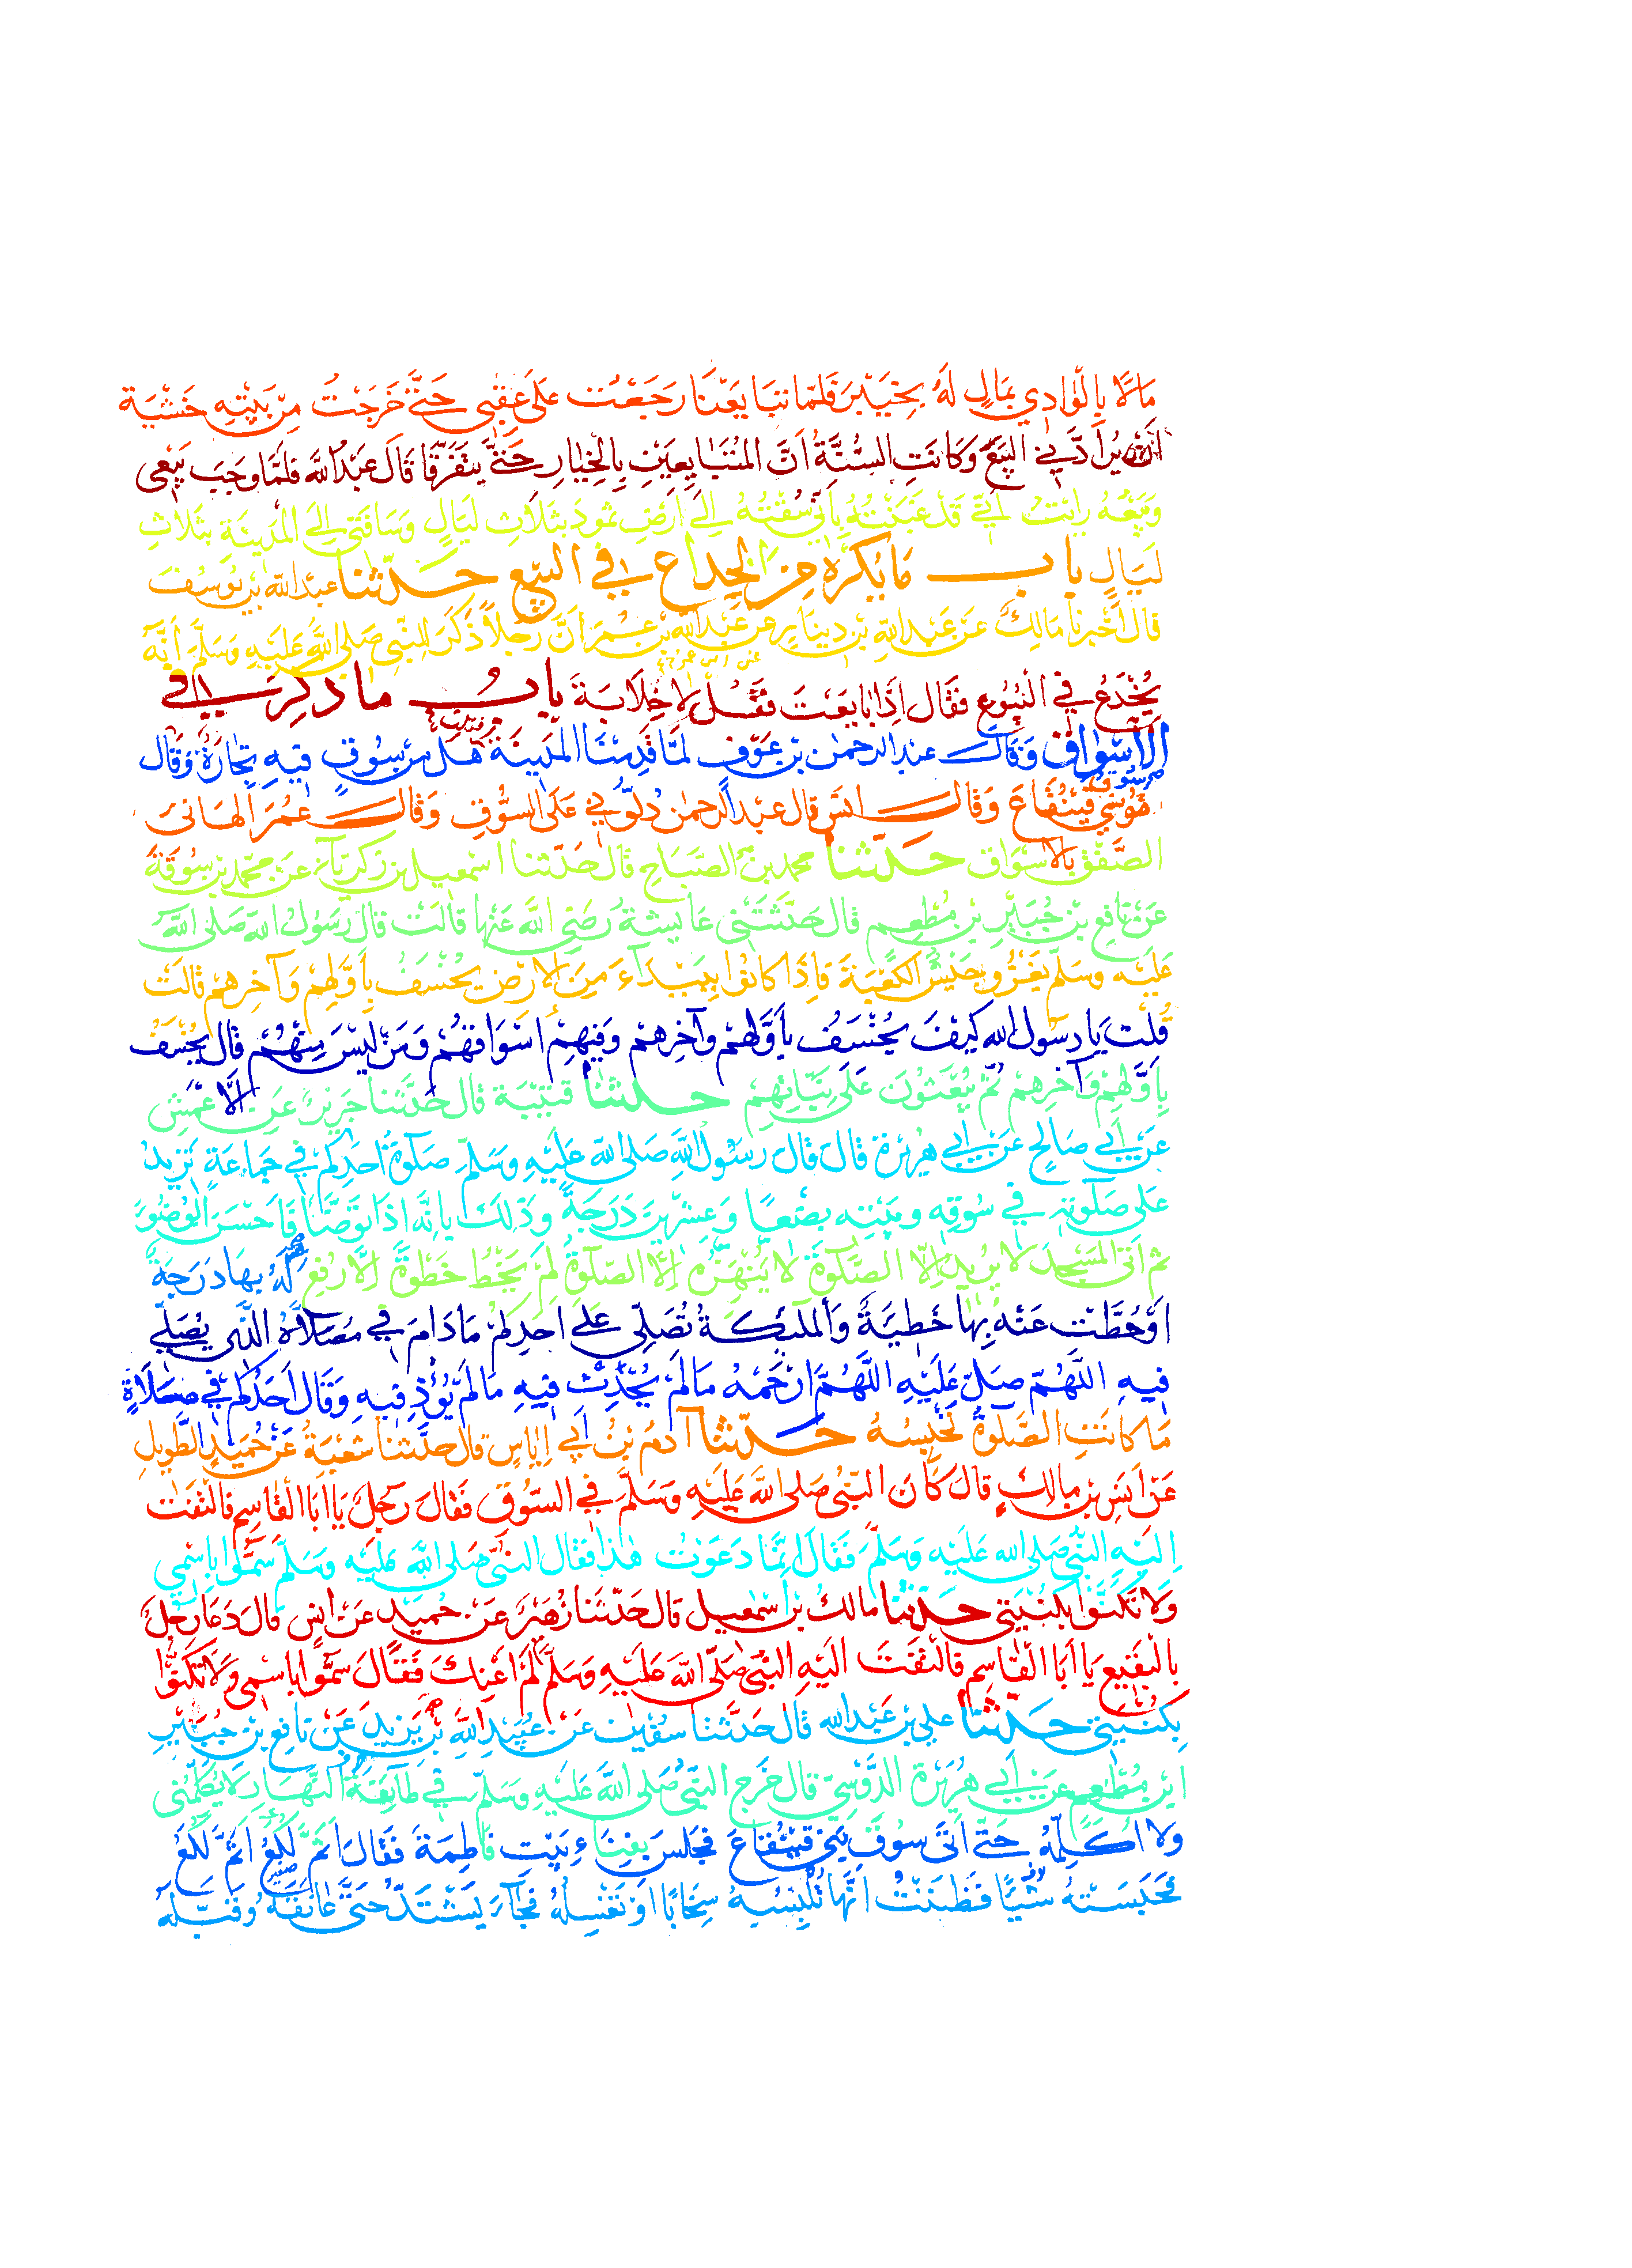 مَالًا بِالْوَادِي بِمَالٍ لَهُ بِخَيْبَرَ فَلَمَّا تَبَايَعْنَا رَجَعْتُ عَلَى عَقِبِي حَتَّى خَرَجْتُ مِنْ بَيْتِهِ خَشْيَةَ
اَنْ يُرَادَّنِي الْبَيْعَ وَكَانَتِ السُّنَّةُ اَنَّ الْمُتَبَايِعَيْنِ بِالْخِيَارِ حَتَّى يَتَفَرَّقَا قَالَ عَبْدُ اللَّهِ فَلَمَّا وَجَبَ بَيْعِي
وَبَيْعُهُ رَاَيْتُ اَنِّي قَدْ غَبَنْتُهُ بِاَنِّي سُقْتُهُ اِلَى اَرْضِ ثَمُودَ بِثَلَاثِ لَيَالٍ وَسَاقَنِي اِلَى الْمَدِينَةِ بِثَلَاثِ
لَيَالٍ بابُ مَا يُكْرَهُ مِنَ الْخِدَاعِ فِي الْبَيْعِ حَدَّثَنَا عَبْدُ اللَّهِ بْنُ يُوسُفَ
قَالَ اَخْبَرَنَا مَالِكٌ عَنْ عَبْدِ اللَّهِ بْنِ دِينَارٍ عَنْ عَبْدِ اللَّهِ بْنِ عُمَرَ اَنَّ رَجُلاً ذَكَرَ لِلنَّبِيِّ صَلَى اللَّهُ عَلَيْهِ وَسَلَّمَ اَنَّهُ
يُخْدَعُ فِي الْبُيُوعِ فَقَالَ اِذَا بَايَعْتَ فَقُلْ لَا خِلَابَةَ بابُ ما ذُكِرَ فِي
الْاَسْوَاقِ وَقَالَ عبدُ الرحمٰن بن عَوْفٍ لَمَّا قَدِمْنَا الْمَدِينَةَ هَلْ مِنْ سُوقٍ فِيهِ تِجَارَةٌ وَقَال
سُوقُ قَيْنُقَاعَ وَقَالَ انَسٌ قال عبدُ الرحمٰن دُلُّونِي عَلَى السُّوقِ وَقَالَ عُمَرُ اَلْهَانِي
الصَّفْقُ بِالْاَسْوَاقِ حَدَّثَنَا محمدُ بْنُ الصَّبَّاحِ قَال حَدَّثَنا اسْمٰعِيلُ بن زَكَرِيَّاءَ عَنْ محمّدِ بْنِ سُوقَةَ
عَنْ نَافِعِ بْنِ جُبَيْرِ بْنِ مُطْعِمٍ قَال حَدَّثَتْنِي عَايِشَةُ رَضِيَ اللَّهُ عَنْهَا قَالَتْ قَالَ رَسُولُ اللَّهِ صَلَى اللَّهُ
عَلَيْهِ وَسَلَّمَ يَغْزُو جَيْشٌ الْكَعْبَةَ فَاِذَا كَانُوا بِبَيْدَاءَ مِنَ الْاَرْضِ يُخْسَفُ بِاَوَّلِهِمْ وَآخِرِهِمْ قَالَتْ
قُلْتُ يَا رَسُولَ اللَّهِ كَيْفَ يُخْسَفُ بِاَوَّلِهِمْ وَآخِرِهِمْ وَفِيهِمْ اَسْوَاقُهُمْ وَمَنْ لَيْسَ مِنْهُمْ قَال يُخْسَفُ
بِاَوَّلِهِمْ وَآخِرِهِمْ ثُمَّ يُبْعَثُونَ عَلَى نِيَّاتِهِمْ حَدَّثَنَا قُتَيْبَةُ قَال حَدَّثَنَا جَرِيرٌ عَنِ الْاَعْمَشِ
عَنْ اَبِي صَالِحٍ عَنْ اَبِي هُرَيْرَةَ قَالَ قَالَ رَسُولُ اللَّهِ صَلَى اللَّهُ عَلَيْهِ وَسَلَّمَ صَلٰوةُ اَحَدِكُمْ فِي جَمَاعَةٍ تَزِيدُ
عَلَى صَلٰوتِهِ فِي سُوقِهِ وَبَيْتِهِ بِضْعًا وَعِشْرِينَ دَرَجَةً وَذٰلِكَ بِاَنَّهُ اِذَا تَوَضَّاَ فَاَحْسَنَ الْوُضُوءَ
ثم اَتَى الْمَسْجِدَ لَا يُرِيدُ اِلَّا الصَّلٰوةَ لَا يَنْهَزُهُ اِلَّا الصَّلٰوةُ لَمْ يَخْطُ خَطْوَةً اِلَّا رُفِعَ لَهُ بِهَا دَرَجَةً
اَوْ حُطَّتْ عَنْهُ بِهَا خَطِيئَةٌ وَالْمَلٰئِكَةُ تُصَلِّي عَلَى اَحَدِكُمْ مَا دَامَ فِي مُصَلَّاهُ الَّذِي يُصَلِّي
فِيهِ اللَّهُمَّ صَلِّ عَلَيْهِ اللَّهُمَّ ارْحَمْهُ مَا لَمْ يُحْدِثْ فِيهِ مَا لَمْ يُؤْذِ فِيهِ وَقَال اَحَدُكُمْ فِي صَلَاةٍ
مَا كَانَتِ الصَّلٰوةُ تَحْبِسُهُ حَدَّثَنَا آدَمُ بْنُ اَبِي اِيَاسٍ قال حَدَّثَنا شُعْبَةُ عَنْ حُمَيْدٍ الطَّوِيلِ
عَنْ اَنَسِ بْنِ مَالِكٍ قَالَ كَانَ النَّبِيُّ صَلَى اللَّهُ عَلَيْهِ وَسَلَّمَ فِي السُّوقِ فَقَالَ رَجُلٌ يَا اَبَا الْقَاسِمِ فَالْتَفَتَ
اِلَيْهِ النَّبِيُّ صَلَى اللَّهُ عَلَيْهِ وَسَلَّمَ فَقَالَ اِنَّمَا دَعَوْتُ هٰذَا فَقَال النَّبِيُّ صَلَى اللَّهُ عَلَيْهِ وَسَلَّمَ سَمُّوا بِاسْمِي
وَلَا تَكَنَّوْا بِكُنْيَتِي حَدَّثَنَا مَالِكُ بْنُ اسْمٰعِيل قَال حَدَّثَنَا زُهَيْرٌ عَنْ حُمَيْدٍ عَنْ اَنَسٍ قَالَ دَعَا رَجُلٌ
بِالْبَقِيعِ يَا اَبَا الْقَاسِمِ فَالْتَفَتَ اِلَيْهِ النَّبِيُّ صَلَّى اللَّهُ عَلَيْهِ وَسَلَّمَ لَمْ اَعْنِكَ فَقَالَ سَمُّوا بِاسْمِي وَلَا تَكَنَّوْا
بِكُنْيَتِي حَدَّثَنَا عَلِي بْنُ عَبْدِ اللَّهِ قَال حَدَّثَنَا سُفْيٰنُ عَنْ عُبَيْدِ اللَّهِ بْنِ يَزِيدَ عَنْ نَافِعِ بْنِ جُبَيْرِ
ابْنِ مُطْعِمٍ عَنْ اَبِي هُرَيْرَةَ الدَّوْسِيِّ قَال خَرَجَ النَّبِيُّ صَلَى اللَّهُ عَلَيْهِ وَسَلَّمَ فِي طَائِفَةِ النَّهَارِ لَا يُكَلِّمُنِي
وَلَا اُكَلِّمُهُ حَتَّى اَتَى سُوقَ بَنِي قَيْنُقَاعَ فَجَلَسَ بِفِنَاءِ بَيْتِ فَاطِمَةَ فَقَالَ اَثَمَّ لُكَعُ اَثَمَّ لُكَعُ
فَحَبَسَتْهُ شَيْئًا فَظَنَنْتُ اَنَّهَا تُلْبِسُهُ سِخَابًا اَوْ تُغَسِّلُهُ فَجَاءَ يَشْتَدُّ حَتَّى عَانَقَهُ وَقَبَّلَهُ